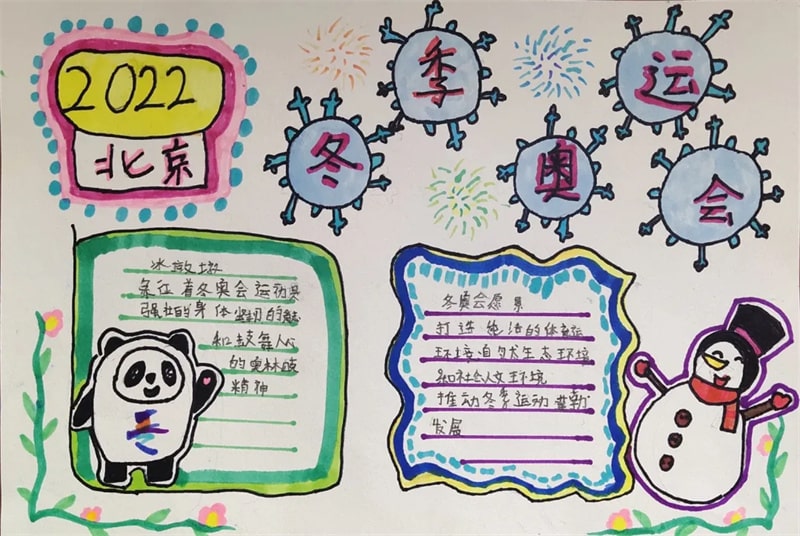 2022
北京
冬季奥运会
冰墩墩
象征着冬奥会运动员
强壮的身体坚韧的
和鼓舞人心
的奥林
精神
冬奥会愿景
打造纯洁的体育运
环境自然生态环境
和社会人文环境
推动冬季运动
发展